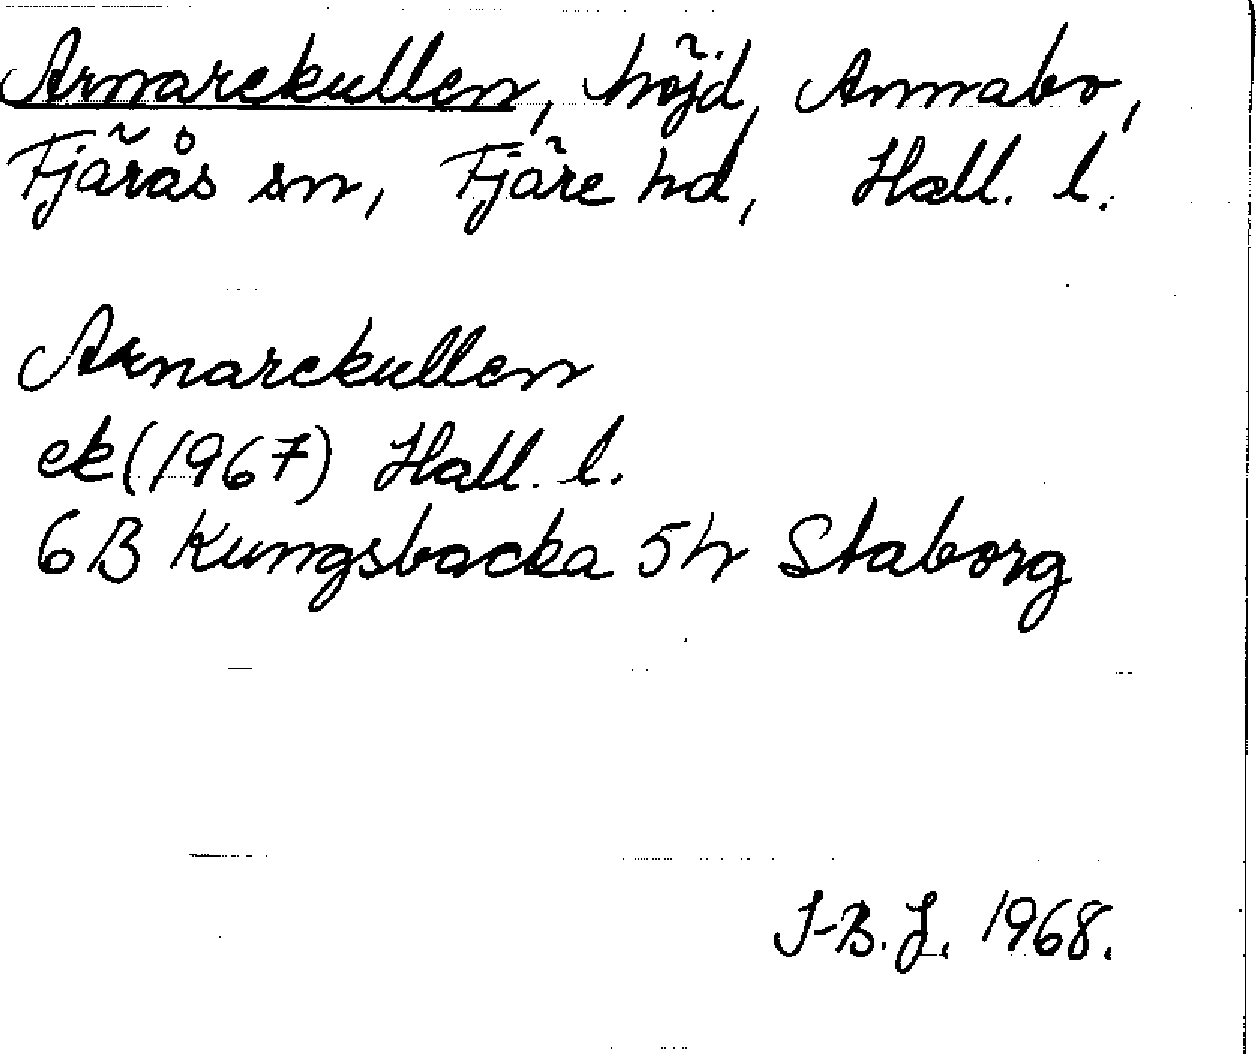 Arnarekullen, höjd, Annabo,
Fjärås sn, Fjäre hd, Hall. l.
Arnarekullen
ek (1967) Hall. l.
6B Kungsbacka 5h Staborg
I-B. J. 1968.